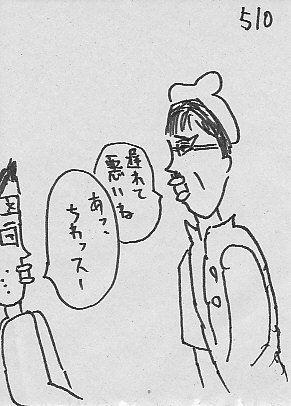 510
遅れて
悪いね
あっ、
ちわっスー